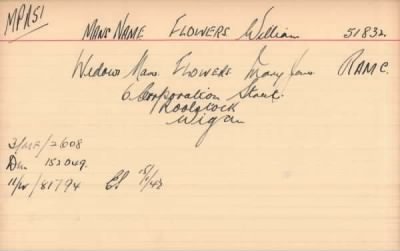 MPA51
MANS NAME FLOWERS William 51832
Widows Name FLOWERS Mary Jane RAMC.
6 Corporation Street.
Poolstock
Wigan
3/MF/2608
Den 152049.
11/W/81794